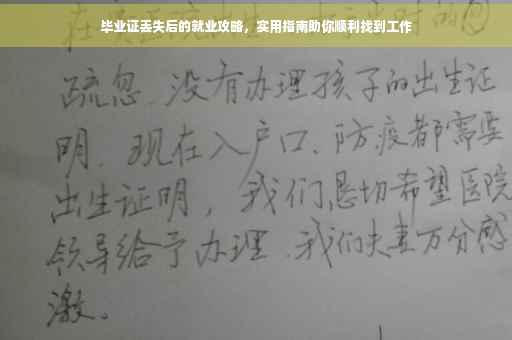 毕业证丢失后的就业攻略，实用指南助你顺利找到工作
疏忽、没有办理孩子的出生证
明、现在入户口、防疫都需要
出生证明，我们恳切希望医院
领导给予办理、我们夫妻万分感
激。